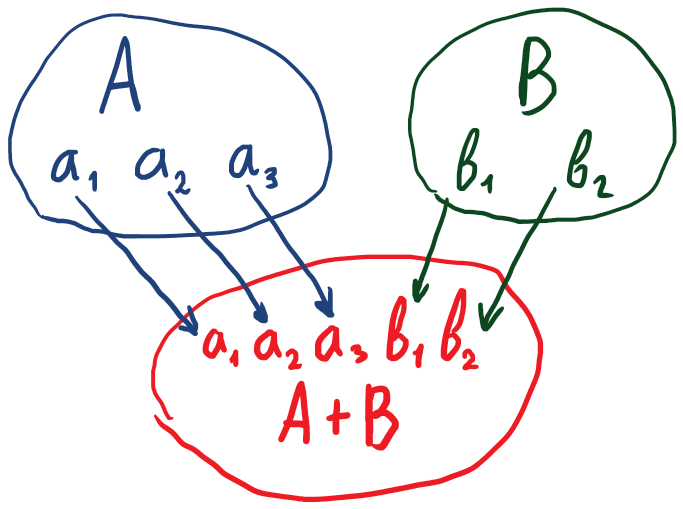 A
a₁ a₂ a₃
B
b₁ b₂
a₁ a₂ a₃ b₁ b₂
A + B